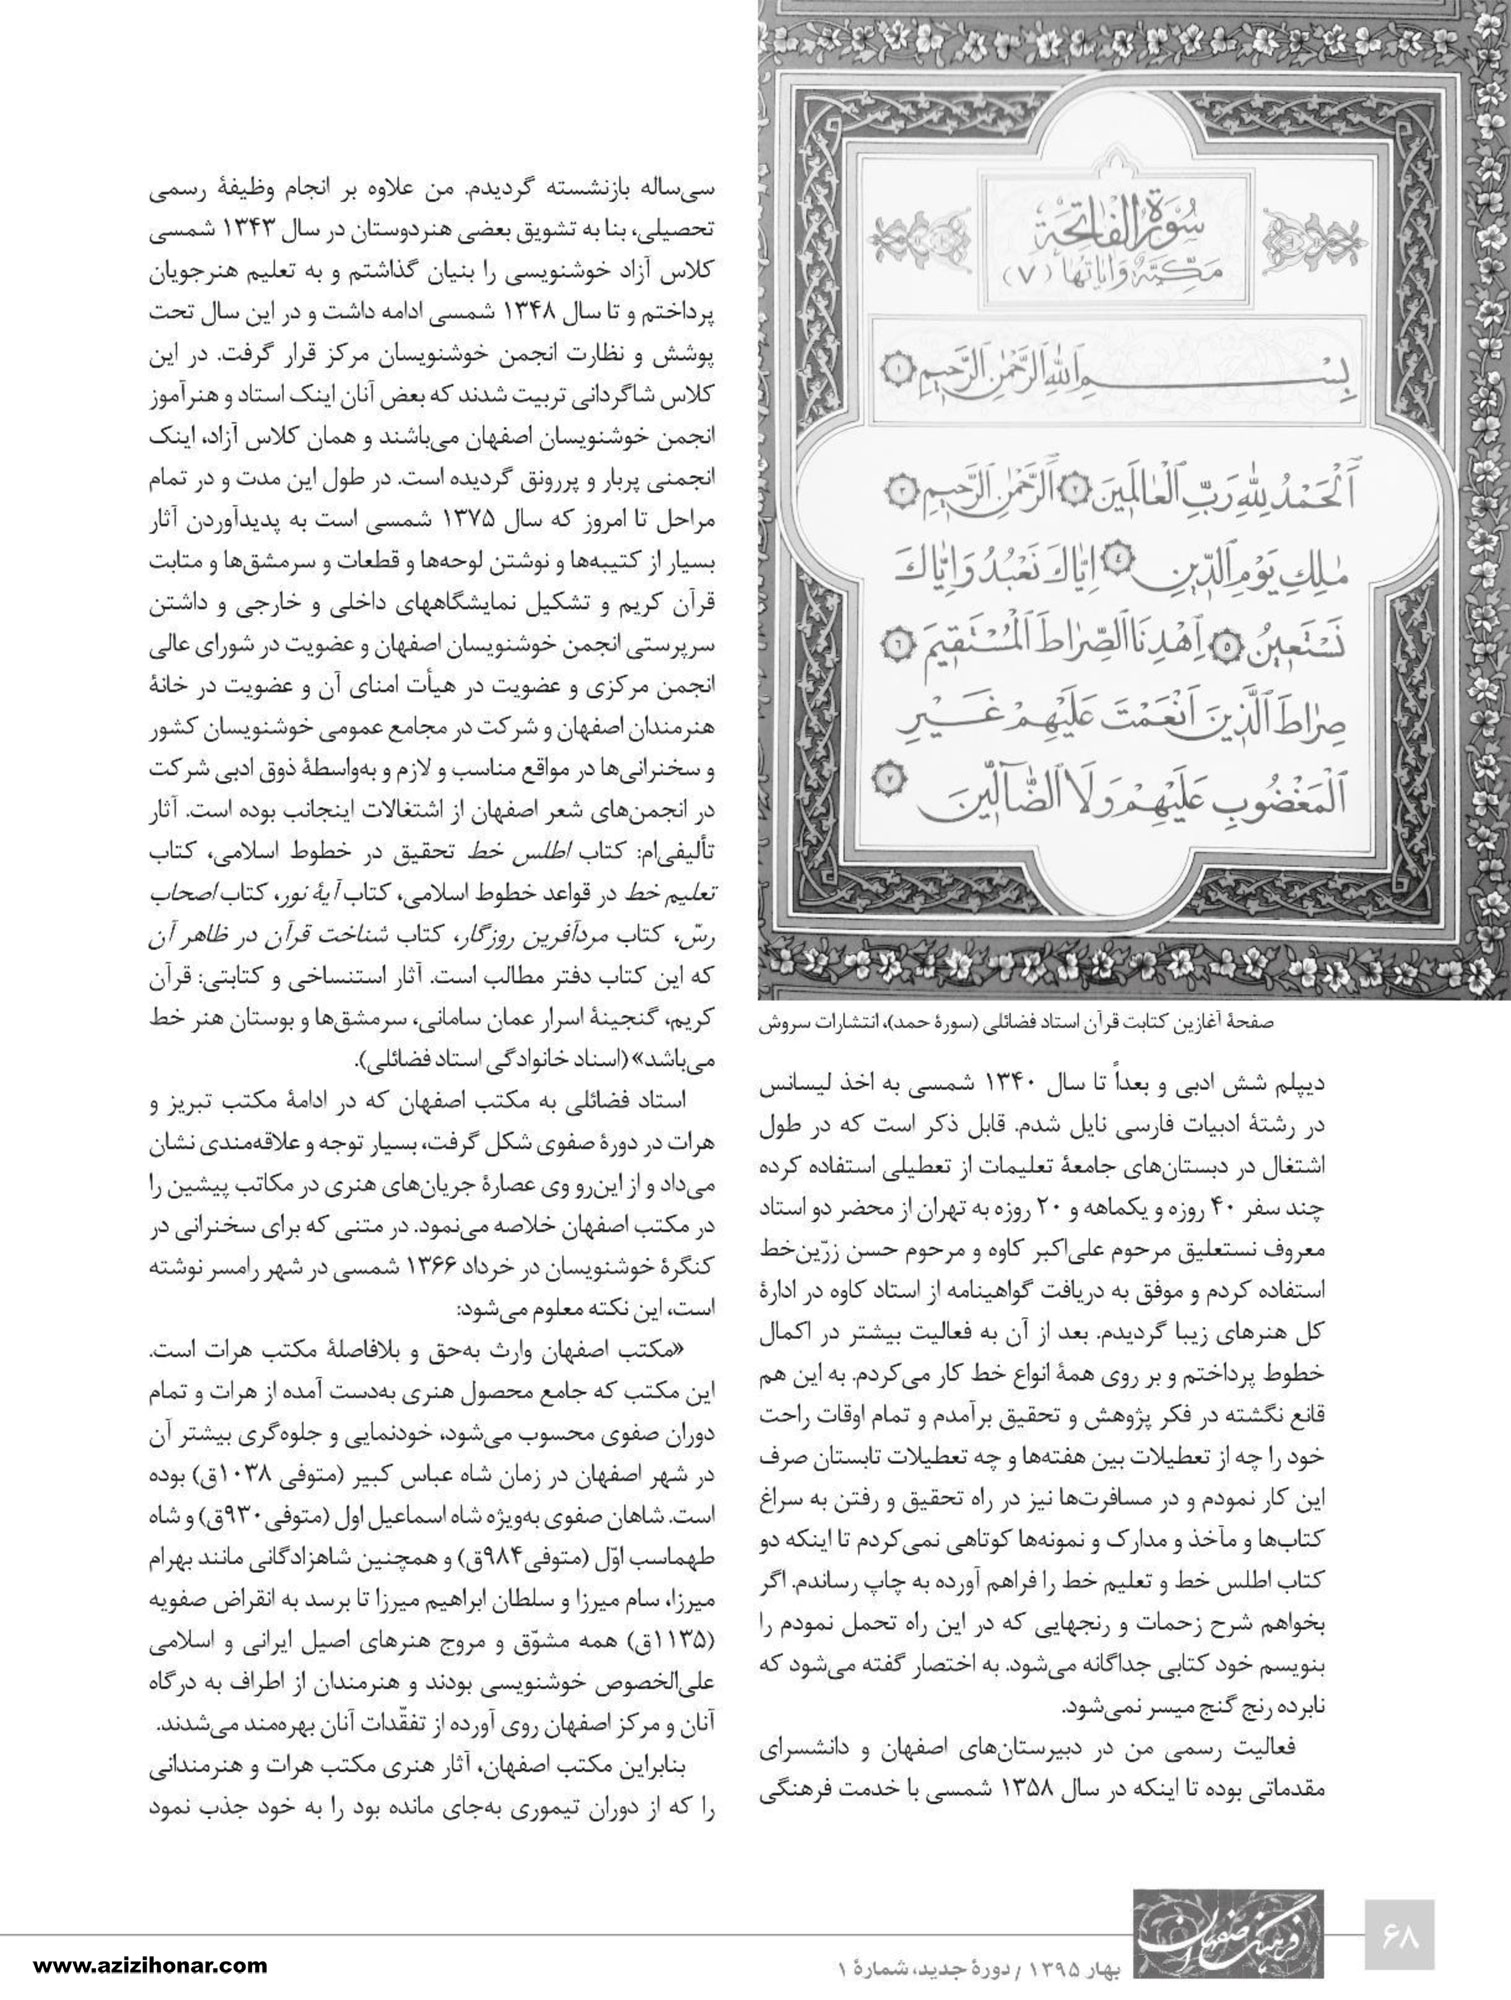 سُورَةُ الفَاتِحَة
مَكِّيَّةٌ وَآيَاتُهَا (٧)
بِسْمِ اللهِ الرَّحْمٰنِ الرَّحِيمِ ١
اَلْحَمْدُ لِلّٰهِ رَبِّ الْعٰالَمِينَ ٢ الرَّحْمٰنِ الرَّحِيمِ ٣
مٰلِكِ يَوْمِ الدِّينِ ٤ اِيّٰاكَ نَعْبُدُ وَاِيّٰاكَ
نَسْتَعِينُ ٥ اِهْدِنَا الصِّرٰاطَ الْمُسْتَقِيمَ ٦
صِرٰاطَ الَّذِينَ اَنْعَمْتَ عَلَيْهِمْ غَيْرِ
الْمَغْضُوبِ عَلَيْهِمْ وَلَا الضّٰآلِّينَ ٧
صفحۀ آغازین کتابت قرآن استاد فضائلی (سورۀ حمد)، انتشارات سروش
دیپلم شش ادبی و بعداً تا سال ۱۳۴۰ شمسی به اخذ لیسانس
در رشتۀ ادبیات فارسی نایل شدم. قابل ذکر است که در طول
اشتغال در دبستان‌های جامعۀ تعلیمات از تعطیلی استفاده کرده
چند سفر ۴۰ روزه و یکماهه و ۲۰ روزه به تهران از محضر دو استاد
معروف نستعلیق مرحوم علی‌اکبر کاوه و مرحوم حسن زرّین‌خط
استفاده کردم و موفق به دریافت گواهینامه از استاد کاوه در ادارۀ
کل هنرهای زیبا گردیدم. بعد از آن به فعالیت بیشتر در اکمال
خطوط پرداختم و بر روی همۀ انواع خط کار می‌کردم. به این هم
قانع نگشته در فکر پژوهش و تحقیق برآمدم و تمام اوقات راحت
خود را چه از تعطیلات بین هفته‌ها و چه تعطیلات تابستان صرف
این کار نمودم و در مسافرت‌ها نیز در راه تحقیق و رفتن به سراغ
کتاب‌ها و مآخذ و مدارک و نمونه‌ها کوتاهی نمی‌کردم تا اینکه دو
کتاب اطلس خط و تعلیم خط را فراهم آورده به چاپ رساندم. اگر
بخواهم شرح زحمات و رنجهایی که در این راه تحمل نمودم را
بنویسم خود کتابی جداگانه می‌شود. به اختصار گفته می‌شود که
نابرده رنج گنج میسر نمی‌شود.
فعالیت رسمی من در دبیرستان‌های اصفهان و دانشسرای
مقدماتی بوده تا اینکه در سال ۱۳۵۸ شمسی با خدمت فرهنگی
سی‌ساله بازنشسته گردیدم. من علاوه بر انجام وظیفۀ رسمی
تحصیلی، بنا به تشویق بعضی هنردوستان در سال ۱۳۴۳ شمسی
کلاس آزاد خوشنویسی را بنیان گذاشتم و به تعلیم هنرجویان
پرداختم و تا سال ۱۳۴۸ شمسی ادامه داشت و در این سال تحت
پوشش و نظارت انجمن خوشنویسان مرکز قرار گرفت. در این
کلاس شاگردانی تربیت شدند که بعض آنان اینک استاد و هنرآموز
انجمن خوشنویسان اصفهان می‌باشند و همان کلاس آزاد، اینک
انجمنی پربار و پررونق گردیده است. در طول این مدت و در تمام
مراحل تا امروز که سال ۱۳۷۵ شمسی است به پدیدآوردن آثار
بسیار از کتیبه‌ها و نوشتن لوحه‌ها و قطعات و سرمشق‌ها و متابت
قرآن کریم و تشکیل نمایشگاههای داخلی و خارجی و داشتن
سرپرستی انجمن خوشنویسان اصفهان و عضویت در شورای عالی
انجمن مرکزی و عضویت در هیأت امنای آن و عضویت در خانۀ
هنرمندان اصفهان و شرکت در مجامع عمومی خوشنویسان کشور
و سخنرانی‌ها در مواقع مناسب و لازم و به‌واسطۀ ذوق ادبی شرکت
در انجمن‌های شعر اصفهان از اشتغالات اینجانب بوده است. آثار
تألیفی‌ام: کتاب اطلس خط تحقیق در خطوط اسلامی، کتاب
تعلیم خط در قواعد خطوط اسلامی، کتاب آیۀ نور، کتاب اصحاب
رسّ، کتاب مردآفرین روزگار، کتاب شناخت قرآن در ظاهر آن
که این کتاب دفتر مطالب است. آثار استنساخی و کتابتی: قرآن
کریم، گنجینۀ اسرار عمان سامانی، سرمشق‌ها و بوستان هنر خط
می‌باشد» (اسناد خانوادگی استاد فضائلی).
استاد فضائلی به مکتب اصفهان که در ادامۀ مکتب تبریز و
هرات در دورۀ صفوی شکل گرفت، بسیار توجه و علاقه‌مندی نشان
می‌داد و از این‌رو وی عصارۀ جریان‌های هنری در مکاتب پیشین را
در مکتب اصفهان خلاصه می‌نمود. در متنی که برای سخنرانی در
کنگرۀ خوشنویسان در خرداد ۱۳۶۶ شمسی در شهر رامسر نوشته
است، این نکته معلوم می‌شود:
«مکتب اصفهان وارث به‌حق و بلافاصلۀ مکتب هرات است.
این مکتب که جامع محصول هنری به‌دست آمده از هرات و تمام
دوران صفوی محسوب می‌شود، خودنمایی و جلوه‌گری بیشتر آن
در شهر اصفهان در زمان شاه عباس کبیر (متوفی ۱۰۳۸ق) بوده
است. شاهان صفوی به‌ویژه شاه اسماعیل اول (متوفی۹۳۰ق) و شاه
طهماسب اوّل (متوفی۹۸۴ق) و همچنین شاهزادگانی مانند بهرام
میرزا، سام میرزا و سلطان ابراهیم میرزا تا برسد به انقراض صفویه
(۱۱۳۵ق) همه مشوّق و مروج هنرهای اصیل ایرانی و اسلامی
علی‌الخصوص خوشنویسی بودند و هنرمندان از اطراف به درگاه
آنان و مرکز اصفهان روی آورده از تفقّدات آنان بهره‌مند می‌شدند.
بنابراین مکتب اصفهان، آثار هنری مکتب هرات و هنرمندانی
را که از دوران تیموری به‌جای مانده بود را به خود جذب نمود
۶۸
فرهنگ اصفهان
بهار ۱۳۹۵ / دورۀ جدید، شمارۀ ۱
www.azizihonar.com